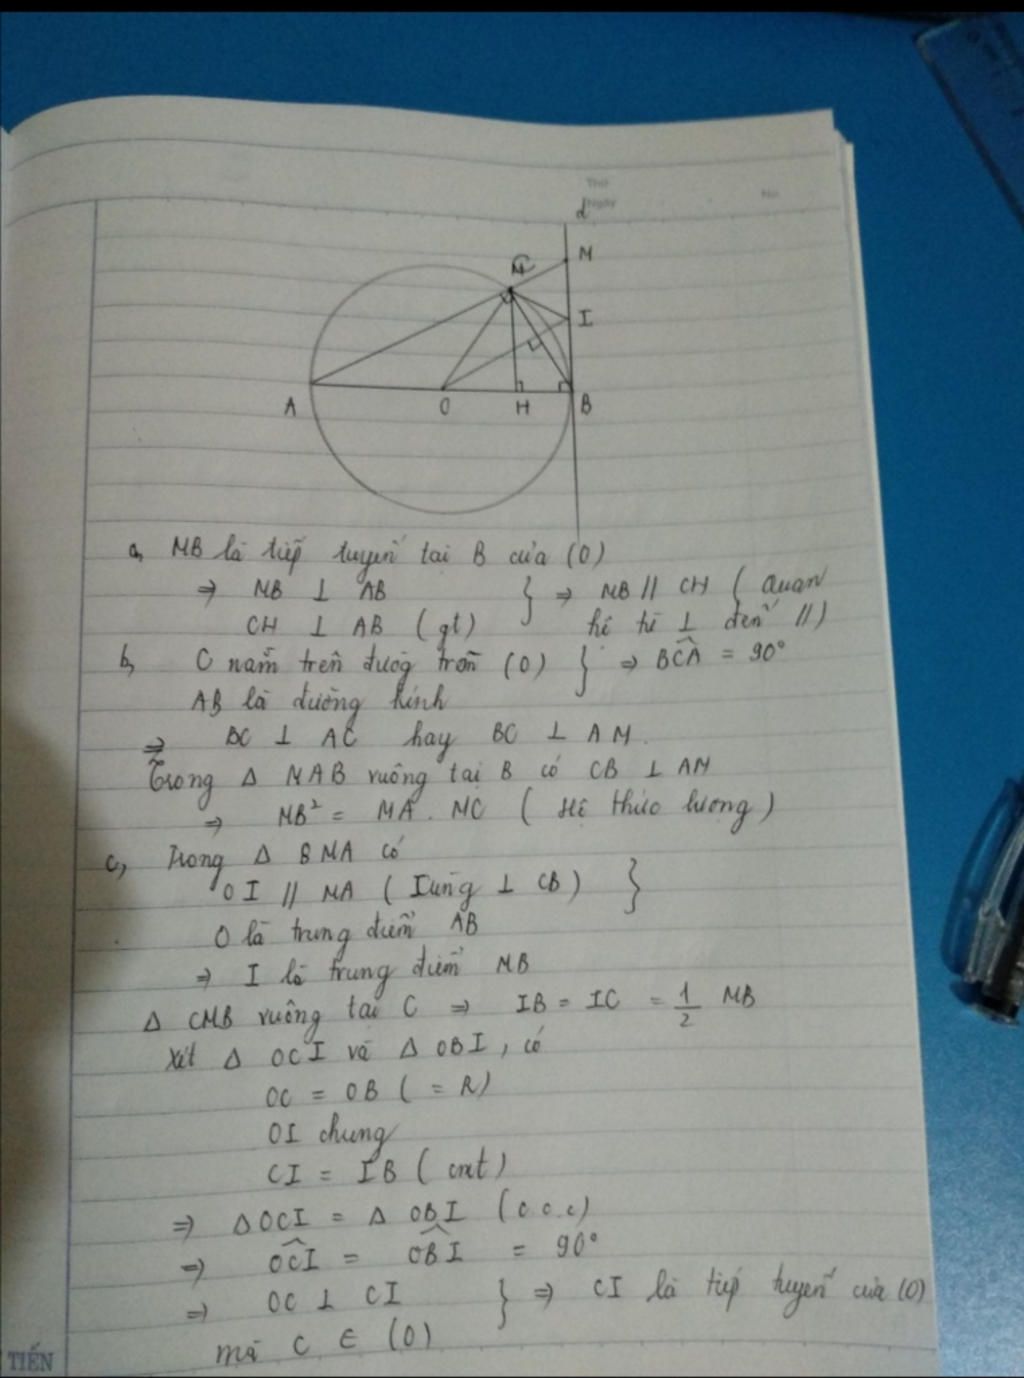 Thứ
Ngày
No
d
M
C
I
A
O
H
B
a, MB là tiếp tuyến tại B của (O)
⇒ MB ⊥ AB
CH ⊥ AB (gt)
} ⇒ MB // CH ( Quan
hệ từ ⊥ đến //)
b, C nằm trên đường tròn (O) } ⇒ BĈA = 90°
AB là đường kính
⇒ BC ⊥ AC hay BC ⊥ AM.
Trong Δ MAB vuông tại B có CB ⊥ AM
⇒ MB² = MA . MC ( Hệ thức lượng )
c, Trong Δ BMA có
OI // MA ( Cùng ⊥ CB) }
O là trung điểm AB
⇒ I là trung điểm MB
Δ CMB vuông tại C ⇒ IB = IC = 1/2 MB
Xét Δ OCI và Δ OBI, có
OC = OB ( = R)
OI chung
CI = IB ( cmt )
⇒ ΔOCI = Δ OBI (c.c.c)
⇒ OĈI = OB̂I = 90°
⇒ OC ⊥ CI } ⇒ CI là tiếp tuyến của (O)
mà C ∈ (O)
TIẾN